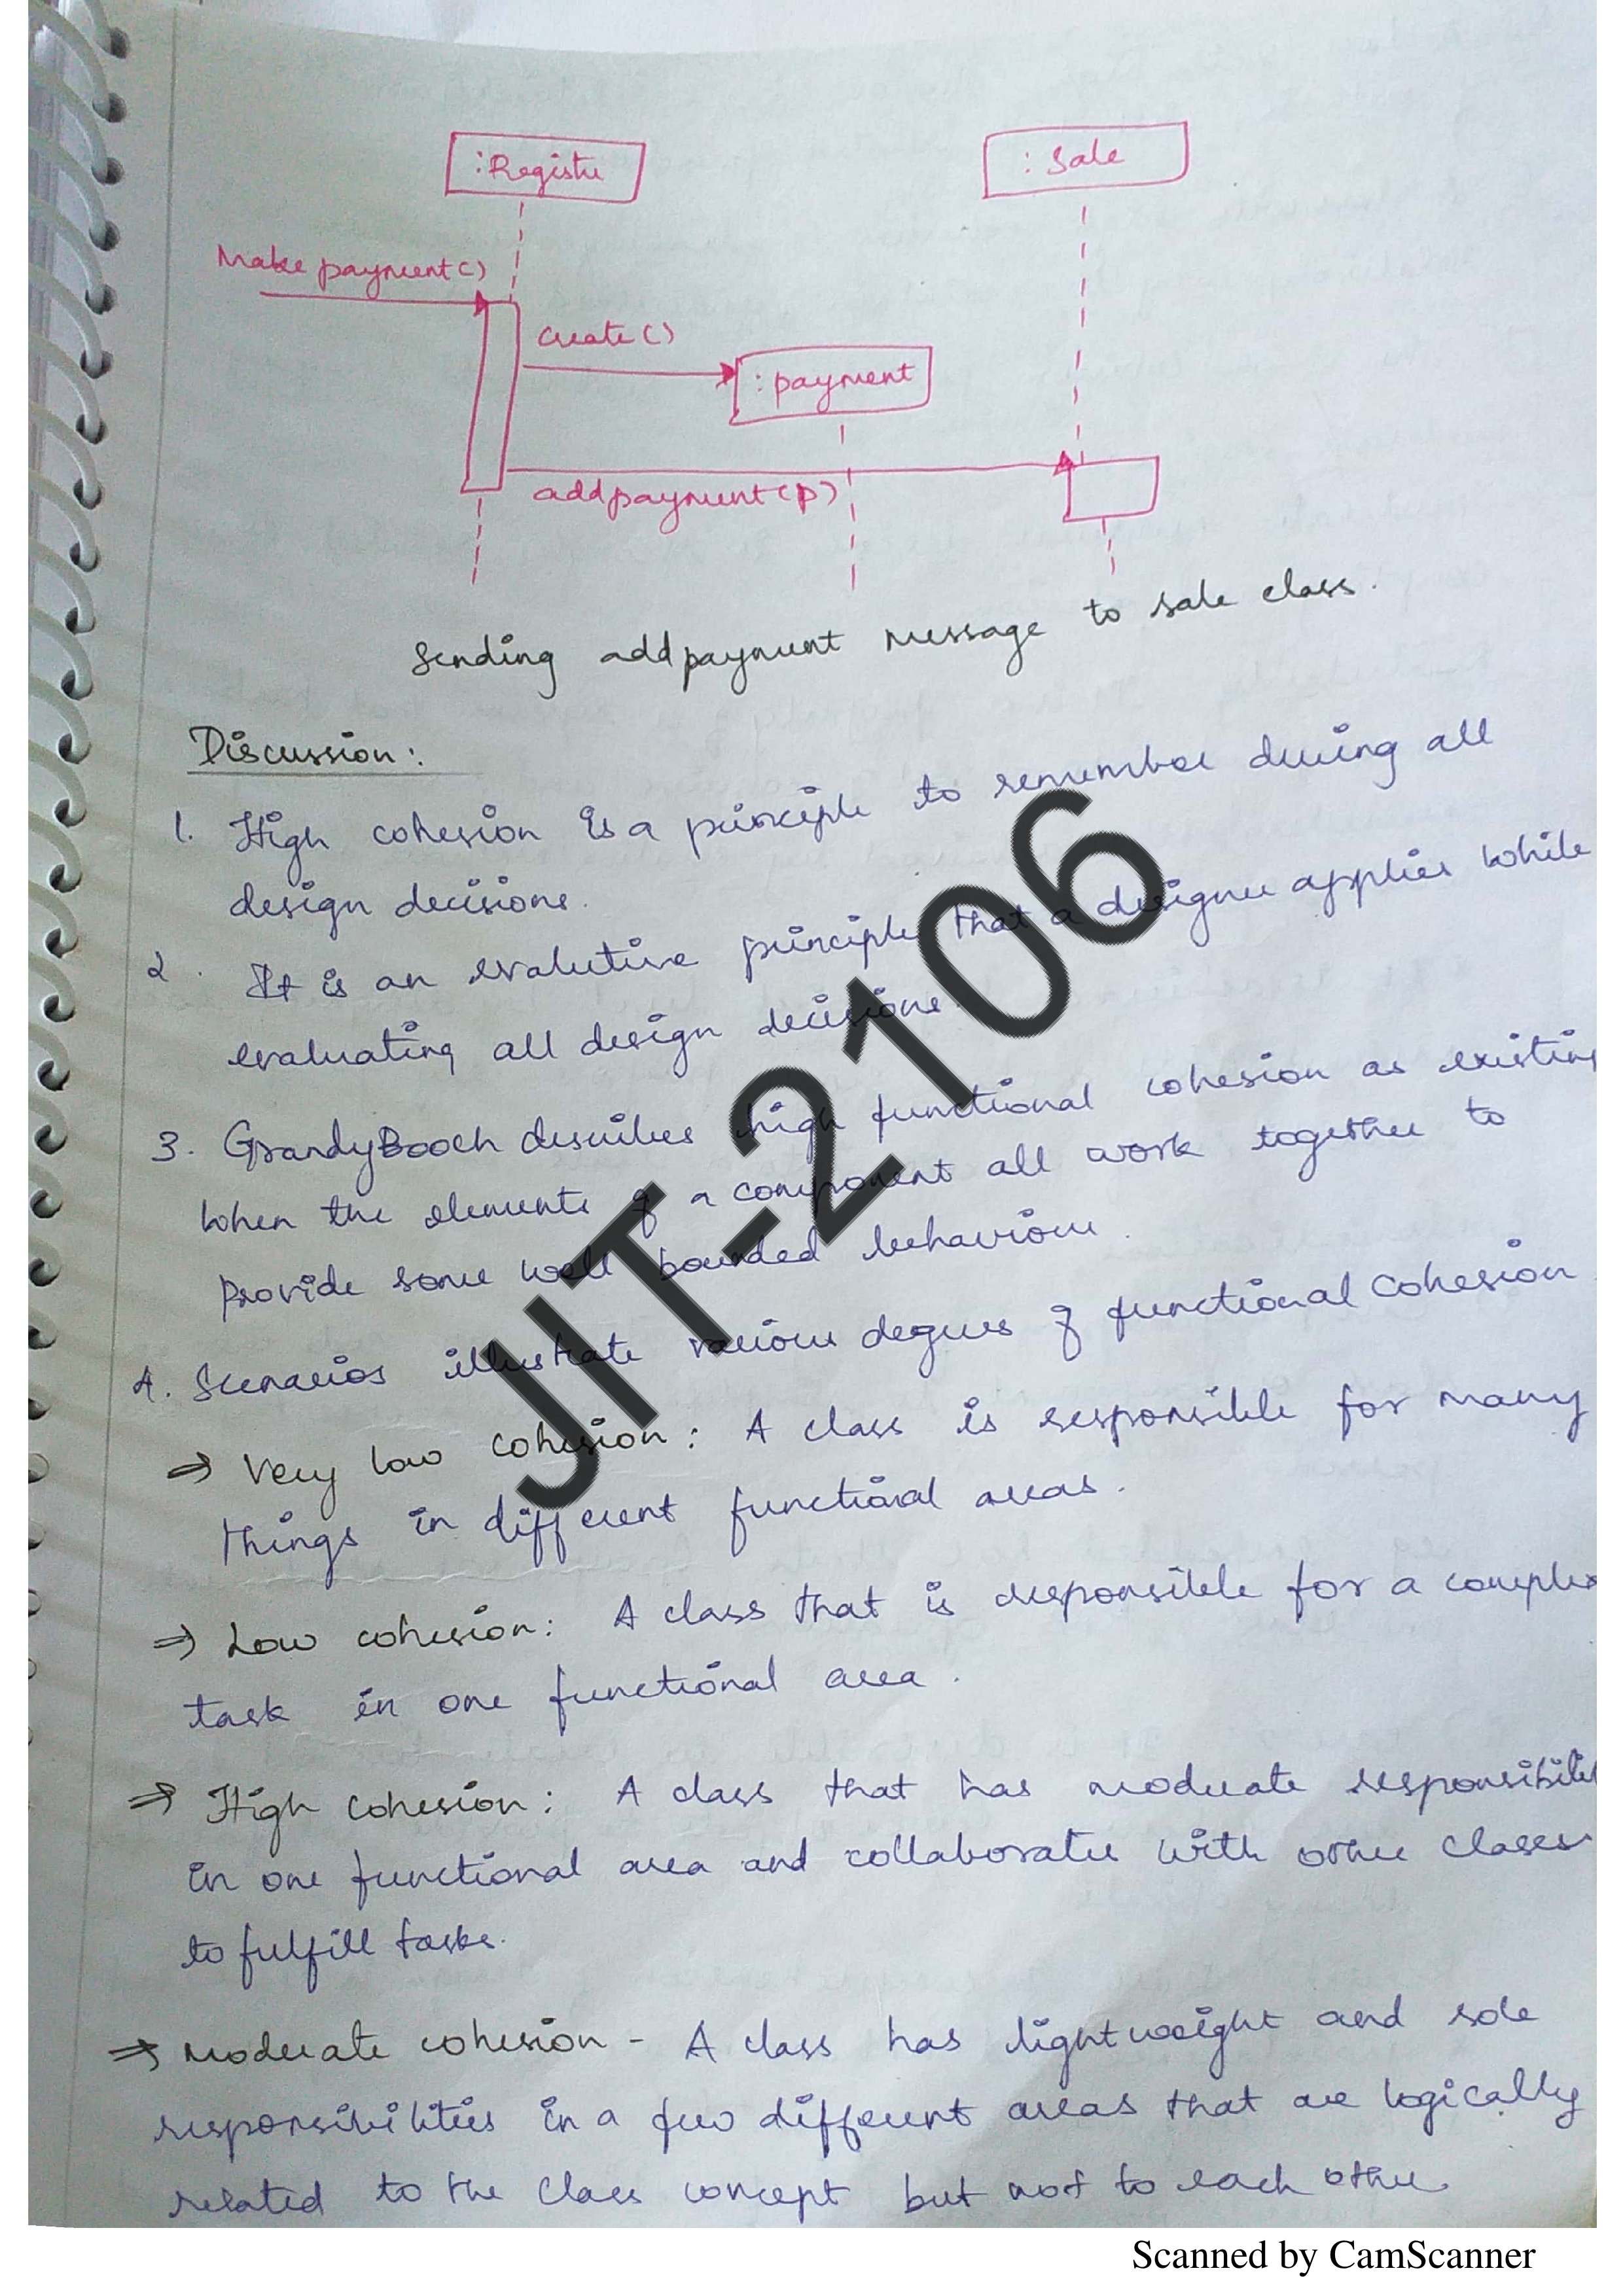 :Register
:Sale
Make payment()
create()
:payment
addpayment(p)
Sending addpayment message to sale class.
Discussion:
1. High cohesion is a principle to remember during all
design decisions.
2. It is an evalutive principle that a designer applies while
evaluating all design decisions.
3. GrandyBooch describes high functional cohesion as existing
when the elements of a component all work together to
provide some well bounded behaviour.
4. Scenarios illustrate various degrees of functional cohesion
⇒ Very low cohesion: A class is responsible for many
things in different functional areas.
⇒ Low cohesion: A class that is responsible for a complex
task in one functional area.
⇒ High cohesion: A class that has moderate responsibilities
in one functional area and collaborates with other classes
to fulfill tasks.
⇒ Moderate cohesion - A class has lightweight and sole
responsibilities in a few different areas that are logically
related to the class concept but not to each other
JIT-2106
Scanned by CamScanner